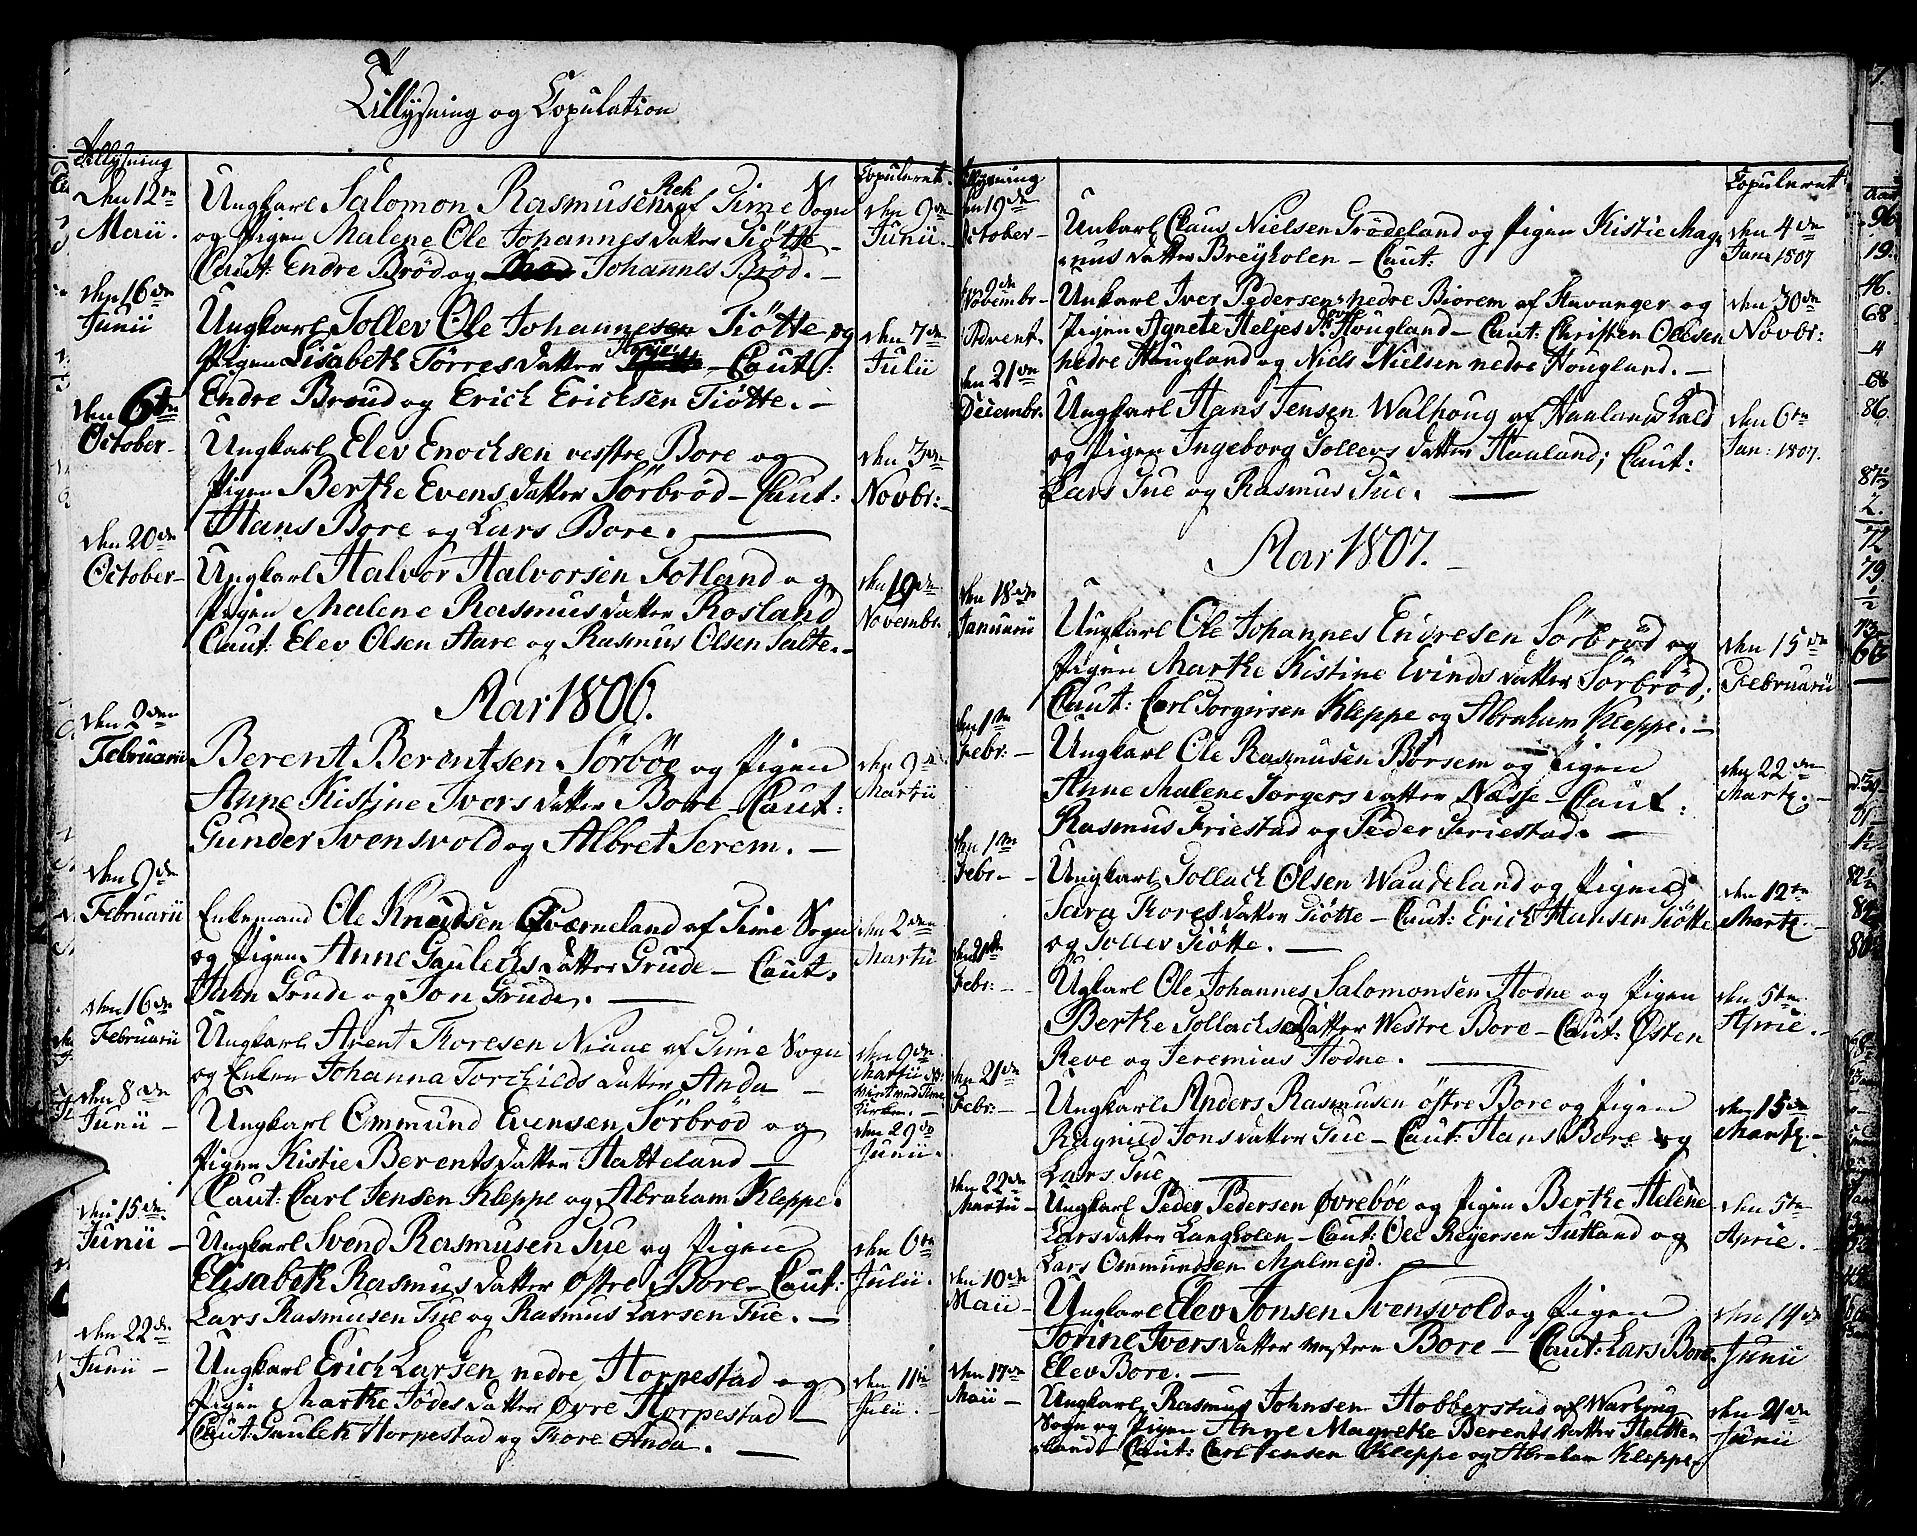 Tillysning og Copulation
Tillysning
Copuleret
den 12te Maii.
Ungkarl Salomon Rasmusen Reh af Time Sogn
og Pigen Malene Ole Johannes datter Tiøtte
Caut: Endre Brød og Johannes Brød. —
den 9de Junii.
den 16de Junii
Ungkarl Tollev Ole Johannesen Tiøtte og
Pigen Lisabeth Torres datter — Caut:
Endre Brøud og Erich Ericksen Tiøtte. —
den 7de Julii
den 6te October
Ungkarl Elev Enochsen vesstre Bore og
Pigen Berthe Evens datter Sörbröd — Caut:
Hans Bore og Lars Bore. —
den 3de Novbr: —
den 20de October —
Ungkarl Halvor Halvorsen Fotland og
Pigen Malene Rasmus datter Rosland
Caut: Elev Olsen Aare og Rasmus Olsen Salte. —
den 19de Novembr.
Aar 1806.
den 2den Februarii
Berent Berentsen Sörböe og Pigen
Anne Kistine Ivers datter Bore — Caut:
Gunder Svensvold og Albret Serem. —
den 9de Martii
den 9de Februarii
Enkemand Ole Knudsen Qværneland af Time Sogn
og Pigen Anne Gaulechs datter Grude — Caut.
Grude og Jon Grude. —
den 2den Martii
den 16de Februarii
Ungkarl Arent Thoresen Niaae af Time Sogn
og Enken Johanna Torchilds datter Anda —
den 9de Martii
viet ved Time Kirken. —
den 8de Junii —
Ungkarl Ommund Evensen Sörbröd og
Pigen Kistie Berents datter Hatteland —
Caut: Carl Jensen Kleppe og Abraham Kleppe.
den 29de Junii.
den 15de Junii —
Ungkarl Svend Rasmusen Tue og Pigen
Elisabeth Rasmus datter østre Bore — Caut:
Lars Rasmusen Tue og Rasmus Larsen Tue. —
den 6te Julii.
den 22de Junii —
Ungkarl Erich Larsen nedre Horpestad og
Pigen Marthe datter Øvre Horpestad —
Caut: Gaulek Horpestad og Thore Anda. —
den 11te Julii. —
Tillysning
Copuleret
den 19de October —
Unkarl Claus Nielsen Grödeland og Pigen Kistie Mag-
nus datter Breykolen — Caut:
den 4de Janr 1807
den 9de Novembr —
Unkarl Iver Pedersen nedre Biorem af Stavanger og
Pigen Agnete Heljes Dr øvre Hougland — Caut: Christen Ollesen
nedre Hougland og Niels Nielsen nedre Hougland. —
den 30de Novbr:
Advent.
den 21de Decembr.
Ungkarl Hans Jensen Walhoug af Naalands Kald
og Pigen Ingeborg Tollevs datter Haaland; Caut:
Lars Tue og Rasmus Tue. —
den 6te Jan: 1807.
Aar 1807. —
den 18de Januarii
Ungkarl Ole Johannes Endresen Sörbröd og
Pigen Marthe Kistine Evinds datter Sörbröd;
Caut: Carl Jorgersen Kleppe og Abraham Kleppe. —
den 15de Februarii
den 1te Febr: —
Ungkarl Ole Rasmusen Börsem og Pigen
Anne Malene Jorgers datter Næsse — Caut:
Rasmus Friestad og Peder Friestad. —
den 22de Martz. —
den 1te Febr: —
Ungkarl Gollach Olsen Waudeland og Pigen
Sara Thores datter Tiøtte — Caut: Erich Hansen Tiøtte
og Tollev Tiøtte. —
den 12te Martz. —
Febr: —
Ugkarl Ole Johannes Salomonsen Hodne og Pigen
Berthe Gollachs Datter Westre Bore — Caut: Østen
Reve og Jeremias Hodne. —
den 5te Aprie. —
den 21de Febr: —
Ungkarl Anders Rasmusen östre Bore og Pigen
Ragnild Jons datter Tue — Caut: Hans Bore og
Lars Tue —
den 15de Martz. —
den 22de Martii —
Ungkarl Peder Pedersen Øvrebøe og Pigen Berthe Helene
Lars datter Langholen — Caut: Ole Reyersen Jutland og
Lars Ommundsen Malmejd. —
den 5te Aprie. —
den 10de Maii —
Ungkarl Elev Jonsen Svensvold og Pigen
Torine Ivers datter vestre Bore — Caut: Lars Bore
Elev Bore. —
den 14de Junii
den 17de Maii —
Ungkarl Rasmus Johnsen Hobberstad af Warhoug
Sogn og Pigen Anne Magrethe Berents datter Hatte-
land Caut: Carl Jensen Kleppe og Abraham Kleppe
den 21de Junii